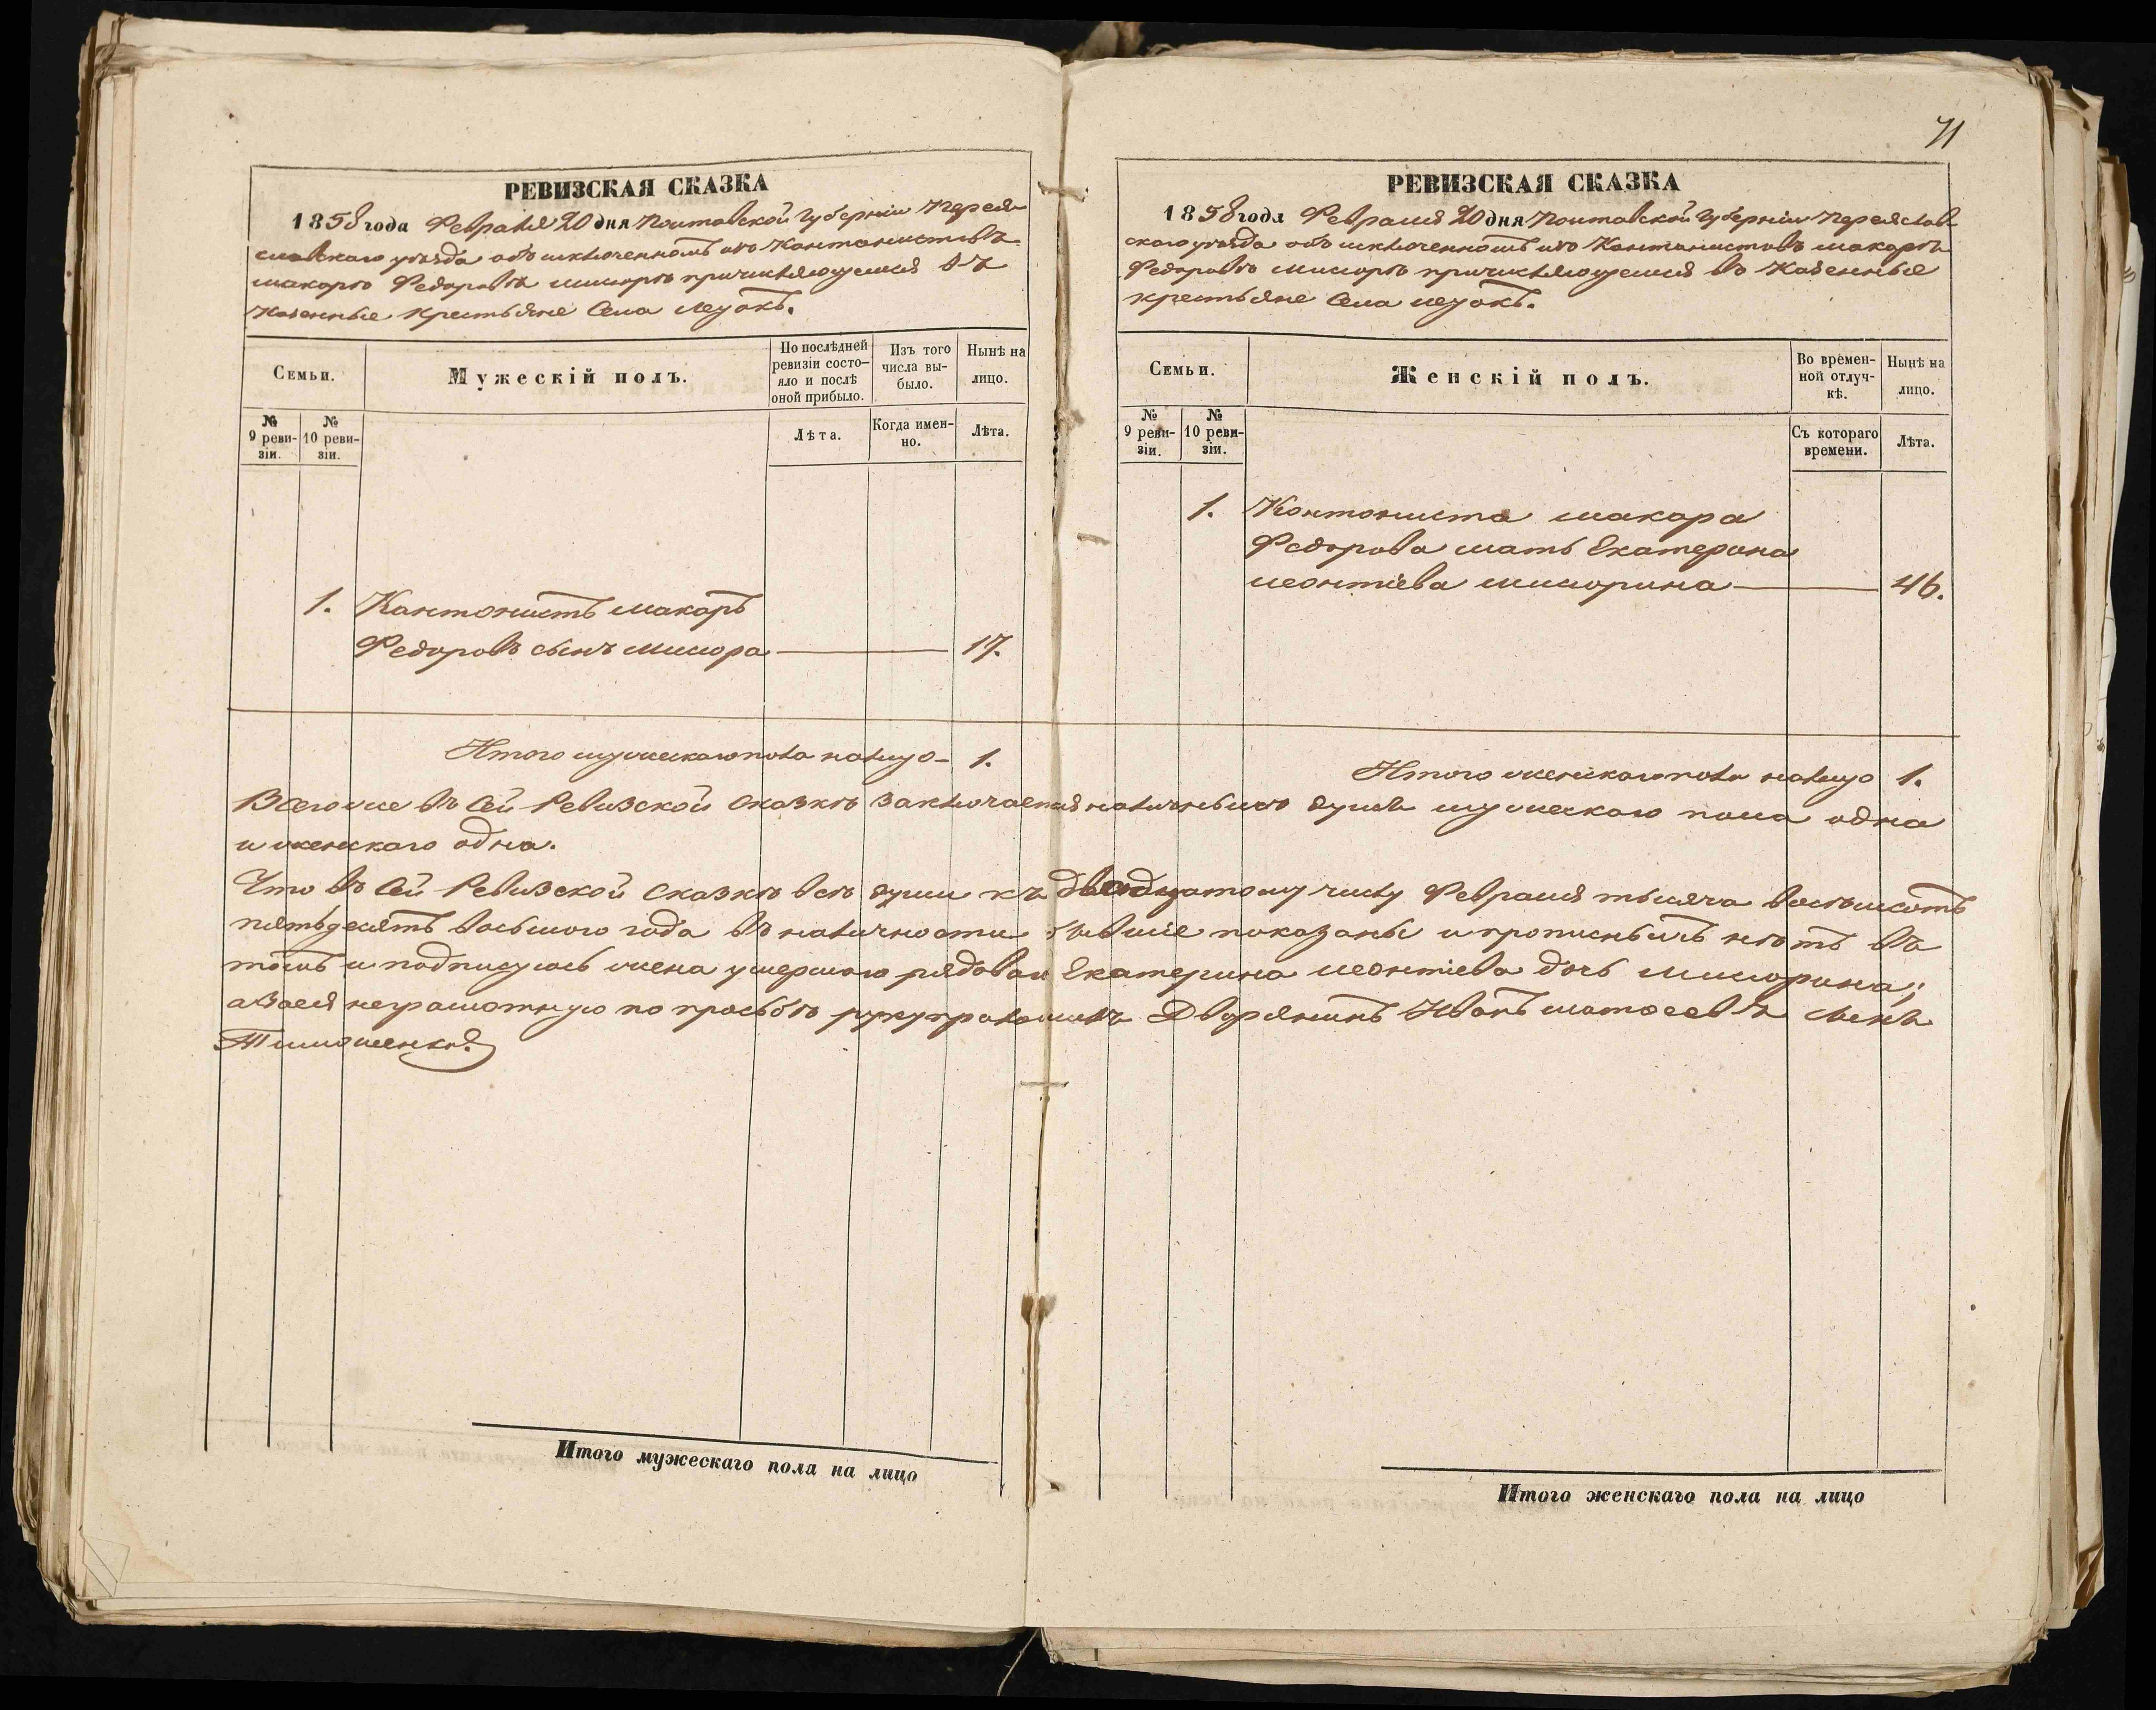 РЕВИЗСКАЯ СКАЗКА
1858 года Февраля 20 дня Полтавской Губерніи Переяс-
лавскаго уѣзда объ исключенномъ изъ Кантонистовъ
Макарѣ Федоровѣ причисляющемся въ
Казенные крестьяне Села
Семьи.
Мужескій полъ.
По послѣдней ревизіи состо-яло и послѣ оной прибыло.
Изъ того числа вы-было.
Нынѣ на лицо.
№ 9 реви-зіи.
№ 10 реви-зіи.
Лѣта.
Когда имен-но.
Лѣта.
1. Кантонистъ Макаръ
Федоровъ сынъ 17.
Итого мужескаго пола налицо - 1.
Итого мужескаго пола на лицо
71
РЕВИЗСКАЯ СКАЗКА
1858 года Февраля 20 дня Полтавской Губерніи Переяслав-
скаго уѣзда объ исключенномъ изъ Кантонистовъ Макарѣ
Федоровѣ причисляющемся въ Казенные
крестьяне Села
Семьи.
Женскій полъ.
Во времен-ной отлуч-кѣ.
Нынѣ на лицо.
№ 9 реви-зіи.
№ 10 реви-зіи.
Съ котораго времени.
Лѣта.
1. Контониста Макара
Федорова мать Екатерина
Леонтіева 46.
Итого женскаго пола налицо 1.
Всего же въ сей Ревизской сказкѣ заключается наличныхъ душъ мужескаго пола одна
и женскаго одна.
Что въ сей Ревизской сказкѣ всѣ души къ двадцатому числу Февраля тысяча восемьсотъ
пятьдесятъ восьмого года въ наличности бывшіе показаны и прописныхъ нѣтъ въ
томъ и подписуюсь жена умершого рядового Екатерина Леонтіева дочь
а за ея неграмотную по просьбѣ Дворянинъ Иванъ Матвеевъ сынъ
Тимошенко
Итого женскаго пола на лицо